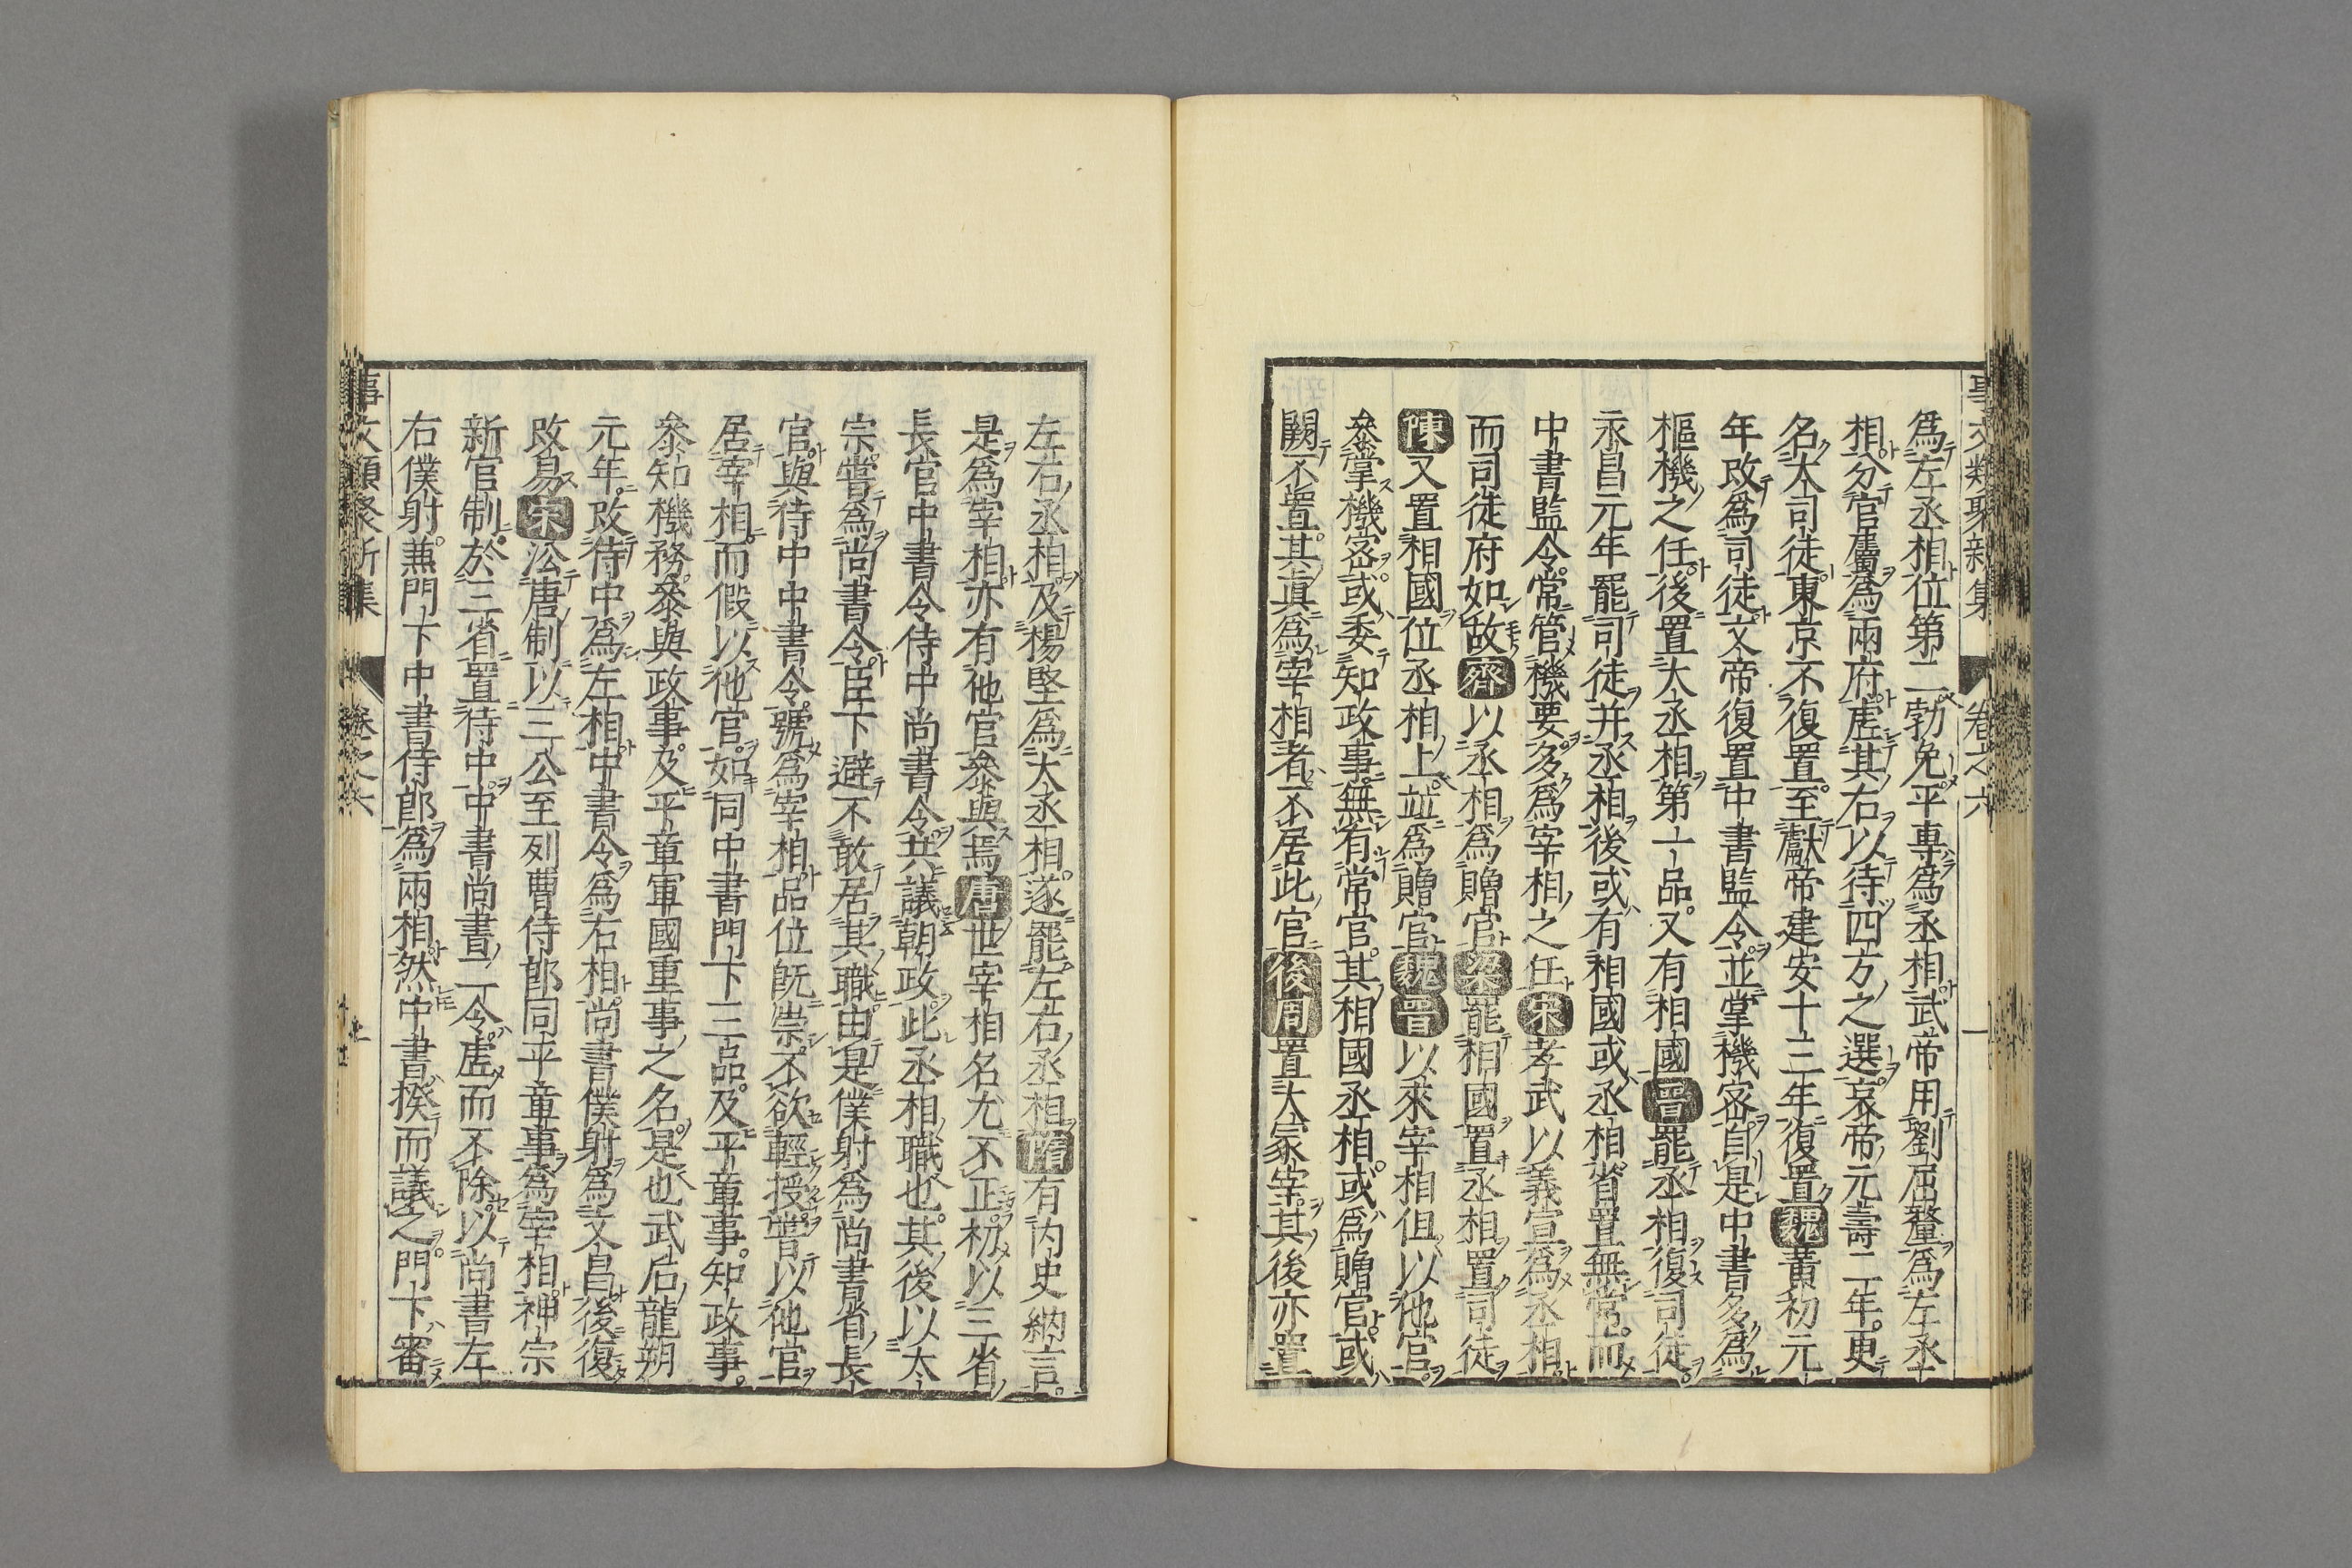 事文類聚新集 卷之六 一
爲左丞相位第二勃免平專爲丞相武帝用劉屈氂爲左丞
相分官屬爲兩府虛其右以待四方之選哀帝元壽二年更
名大司徒東京不復置至獻帝建安十三年復置魏黃初元
年改爲司徒文帝復置中書監令並掌機密自是中書多爲
樞機之任後置大丞相第一品又有相國晉罷丞相復司徒
永昌元年罷司徒并丞相後或有相國或丞相省置無常而
中書監令常管機要多爲宰相之任宋孝武以義宣爲丞相
而司徒府如故齊以丞相爲贈官梁罷相國置丞相置司徒
陳又置相國位丞相上並爲贈官魏晉以來宰相但以他官
叅掌機密或委知政事無有常官其相國丞相或爲贈官或
闕不置其眞爲宰相者不居此官後周置大冢宰其後亦置
左右丞相及楊堅爲大丞相遂罷左右丞相隋有内史納言
是爲宰相亦有他官叅與焉唐世宰相名尤不正初以三省
長官中書令侍中尚書令共議朝政此丞相職也其後以太
宗嘗爲尚書令臣下避不敢居其職由是僕射爲尚書省長
官與侍中中書令號爲宰相品位既崇不欲輕授嘗以他官
居宰相而假以他官如同中書門下三品及平章事知政事
叅知機務叅與政事及平章軍國重事之名是也武后龍朔
元年改侍中爲左相中書令爲右相尚書僕射爲文昌後復
改易宋㳂唐制以三公至列曹侍郎同平章事爲宰相神宗
新官制於三省置侍中中書尚書二令虛而不除以尚書左
右僕射兼門下中書侍郎爲兩相然中書揆而議之門下審
事文類聚新集 卷之六